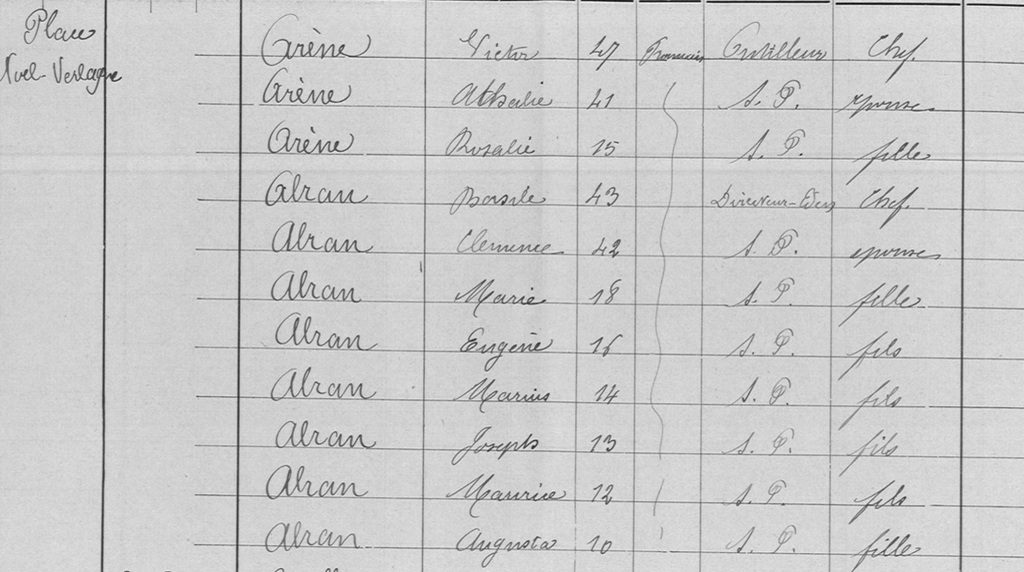 Place
Noel-Verlaque
Arène Victor 47 Français Artilleur Chef
Arène Athalie 41 S. P. épouse
Arène Rosalie 15 S. P. fille
Alran 43 Directeur Chef
Alran Clemence 42 S. P. epouse
Alran Marie 18 S. P. fille
Alran Eugène 16 S. P. fils
Alran Marius 14 S. P. fils
Alran Joseph 13 S. P. fils
Alran Maurice 12 S. P. fils
Alran Augusta 10 S. P. fille